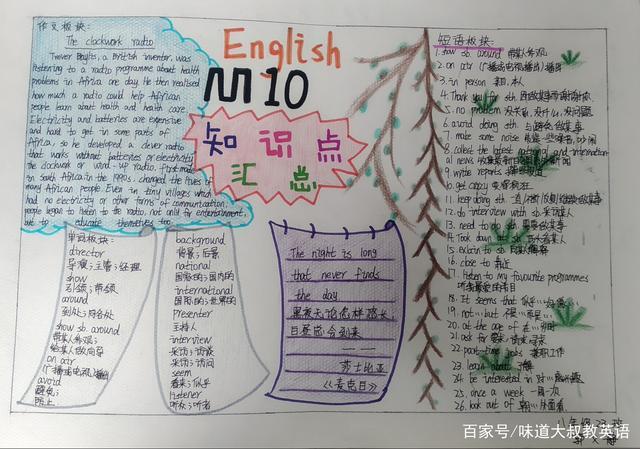 作文板块:
The clockwork radio
Trever Baylis, a British inventor, was
listening to a radio programme about health
problems in Africa one day. He then realised
how much a radio could help African
people learn about health and health care.
Electricity and batteries are expensive
and hard to get in some parts of
Africa, so he developed a clever radio
that works without batteries or electricity
the clockwork or wind up radio, first made
in South Africa in the 1990s, changed the lives of
many African people. Even in tiny villages which
had no electricity or other forms of communication,
people began to listen to the radio, not only for entertainment,
but to educate themselves too.
English
M10
知识点
汇总
单词板块:
director
导演;主管;经理
show
引领;带领
around
到处;四处
show sb around
带某人参观;
给某人做向导
on air
avoid
避免;
防止
background
背景;后景
national
国际的;国内的
international
国际的;世界的
Presenter
主持人
interview
采访;访谈
采访;访问
seem
看来;似乎
listener
听众;听者
The night is long
that never finds
the day
黑夜无论怎样漫长,
白昼总会到来
——
莎士比亚
《麦克白》
短语板块:
1. show sb around 带某人参观
2. on air
3. in person 亲自,本人
4. Thank you for sth
5. no problem 没关系,没什么,没问题
6. avoid doing sth
7. make some noise
8. collect the latest national and international
al news
9. write reports
10. get crazy
11. keep doing sth
12. do interview with sb 采访某人
13. need to do sth 需要做某事
14. took down
15. explain to sb
16. close to 靠近
17. listen to my favourite programmes
18. It seems that
19. not… but 不是…而是…
20. at the age of 在…岁时
21. ask for
22. part-time jobs 兼职工作
23. learn about 了解
24. be interested in 对…感兴趣
25. once a week 一周一次
26. look out of
八年级23班
百家号/味道大叔教英语